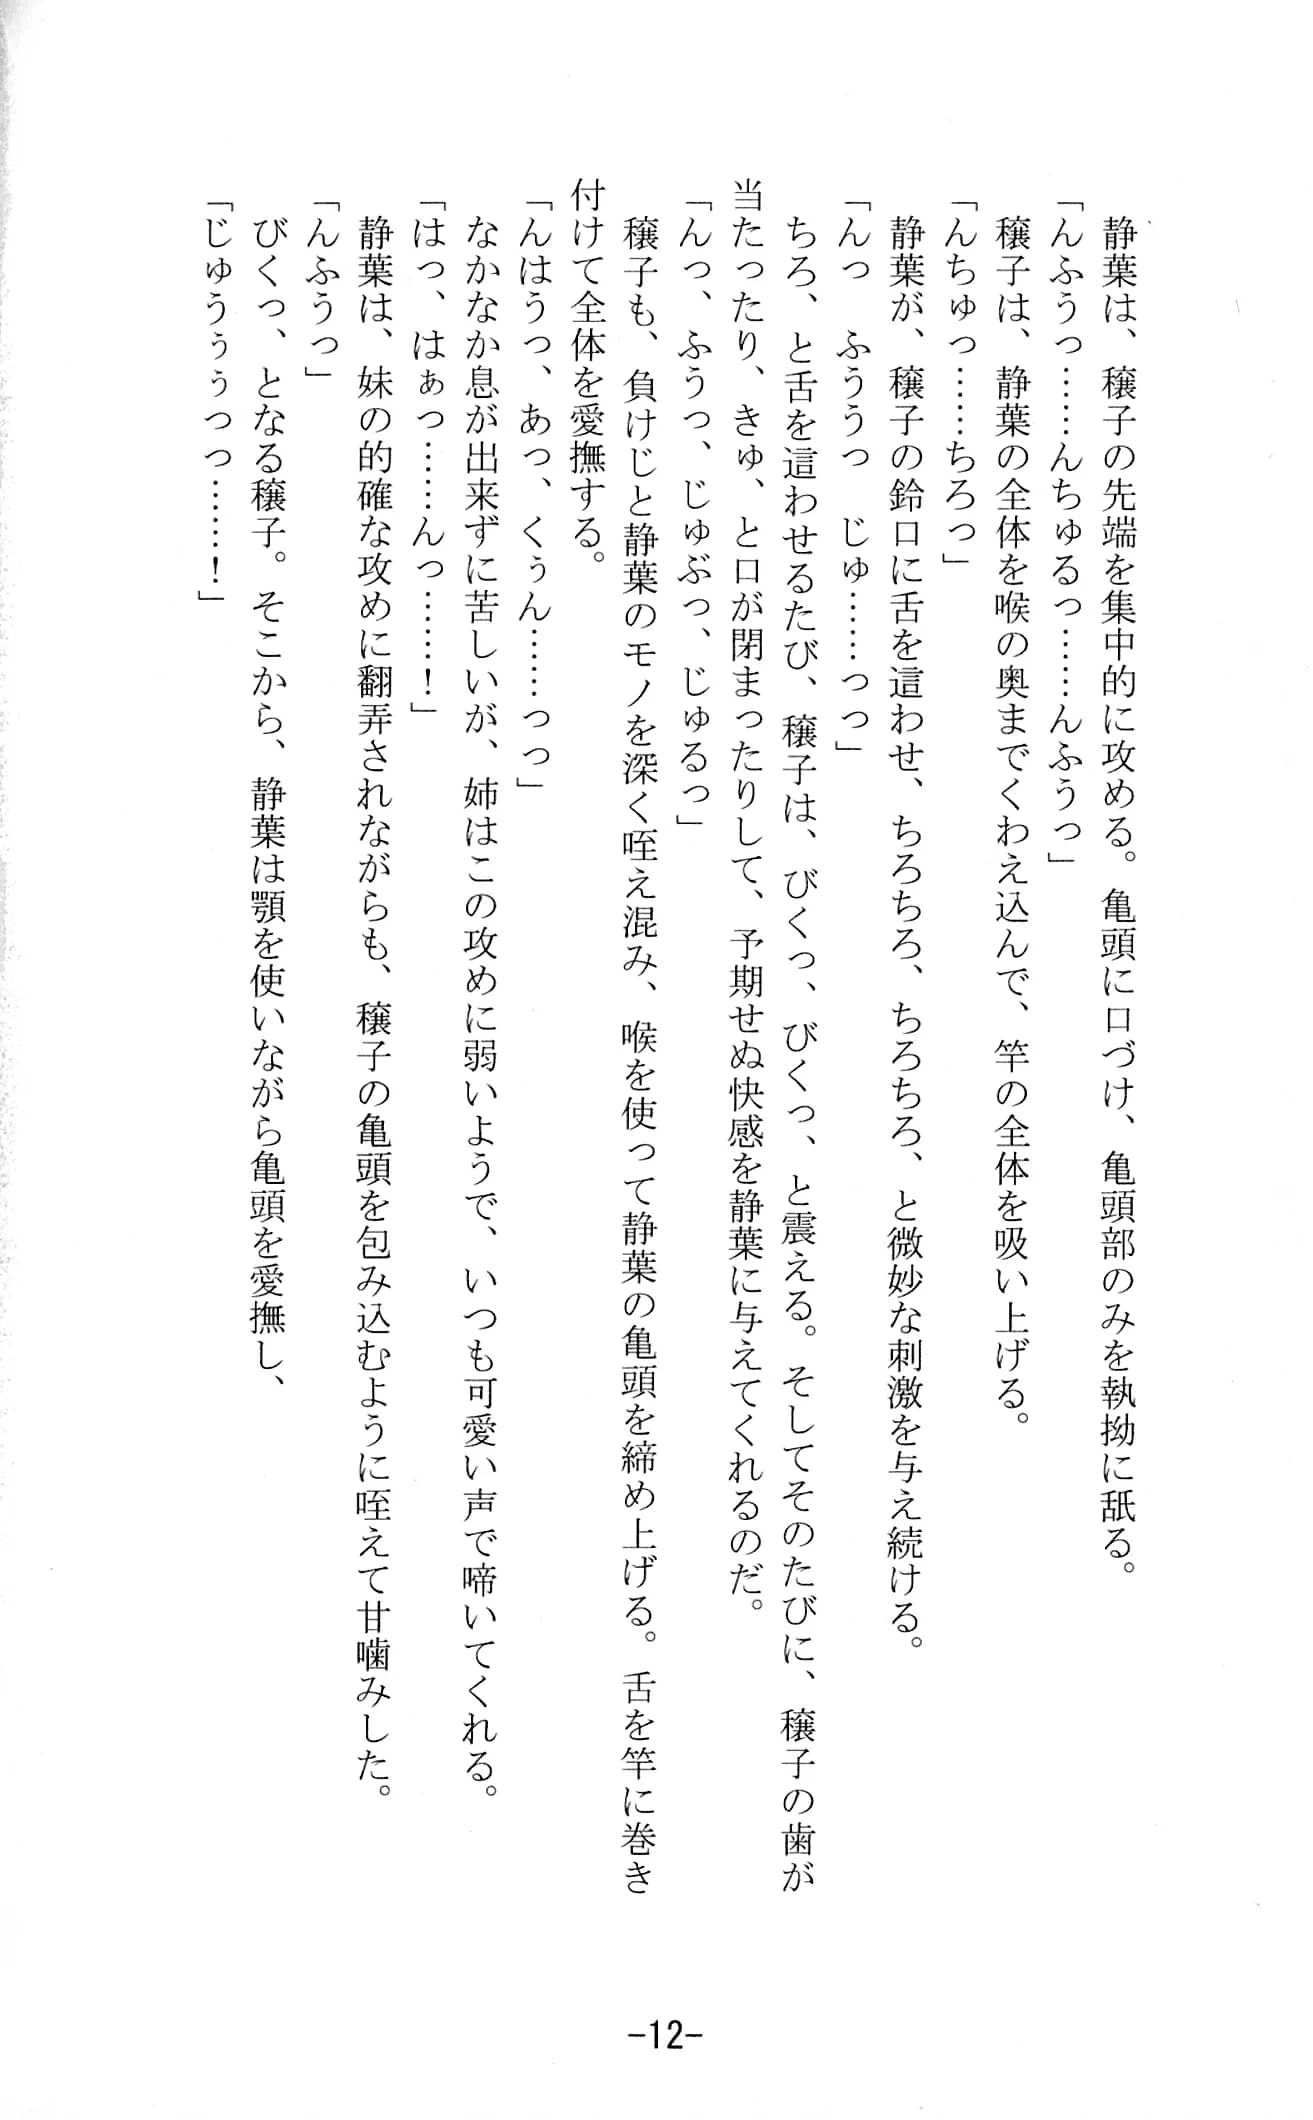 静葉は、穣子の先端を集中的に攻める。亀頭に口づけ、亀頭部のみを執拗に舐る。
「んふうっ……んちゅるっ……んふうっ」
穣子は、静葉の全体を喉の奥までくわえ込んで、竿の全体を吸い上げる。
「んちゅっ……ちろっ」
静葉が、穣子の鈴口に舌を這わせ、ちろちろ、ちろちろ、と微妙な刺激を与え続ける。
「んっ　ふううっ　じゅ……っっ」
ちろ、と舌を這わせるたび、穣子は、びくっ、びくっ、と震える。そしてそのたびに、穣子の歯が
当たったり、きゅ、と口が閉まったりして、予期せぬ快感を静葉に与えてくれるのだ。
「んっ、ふうっ、じゅぶっ、じゅるっ」
穣子も、負けじと静葉のモノを深く咥え混み、喉を使って静葉の亀頭を締め上げる。舌を竿に巻き
付けて全体を愛撫する。
「んはうっ、あっ、くぅん……っっ」
なかなか息が出来ずに苦しいが、姉はこの攻めに弱いようで、いつも可愛い声で啼いてくれる。
「はっ、はぁっ……んっ……！」
静葉は、妹の的確な攻めに翻弄されながらも、穣子の亀頭を包み込むように咥えて甘噛みした。
「んふうっ」
びくっ、となる穣子。そこから、静葉は顎を使いながら亀頭を愛撫し、
「じゅうぅぅっっ……！」
-12-